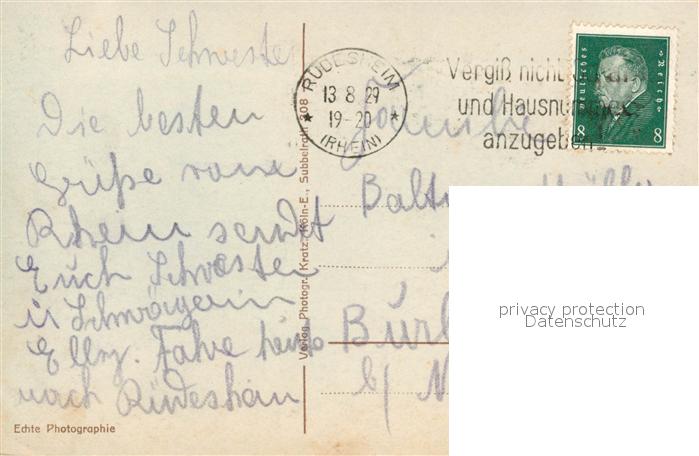 Liebe Schwester
Die besten
Grüße vom
Rhein sendet
Euch Schwester
u Schwägerin
Elly. Fahre heute
nach Rüdesheim
Echte Photographie
Verlag Photogr. Kratz, Köln-E., Subbelratherstr. 208
RÜDESHEIM
13 8 29
19-20
(RHEIN)
Vergiß nicht
und Hausnummer
anzugeben!
Deutsches Reich
8 8
Familie
Müller
b/
privacy protection
Datenschutz